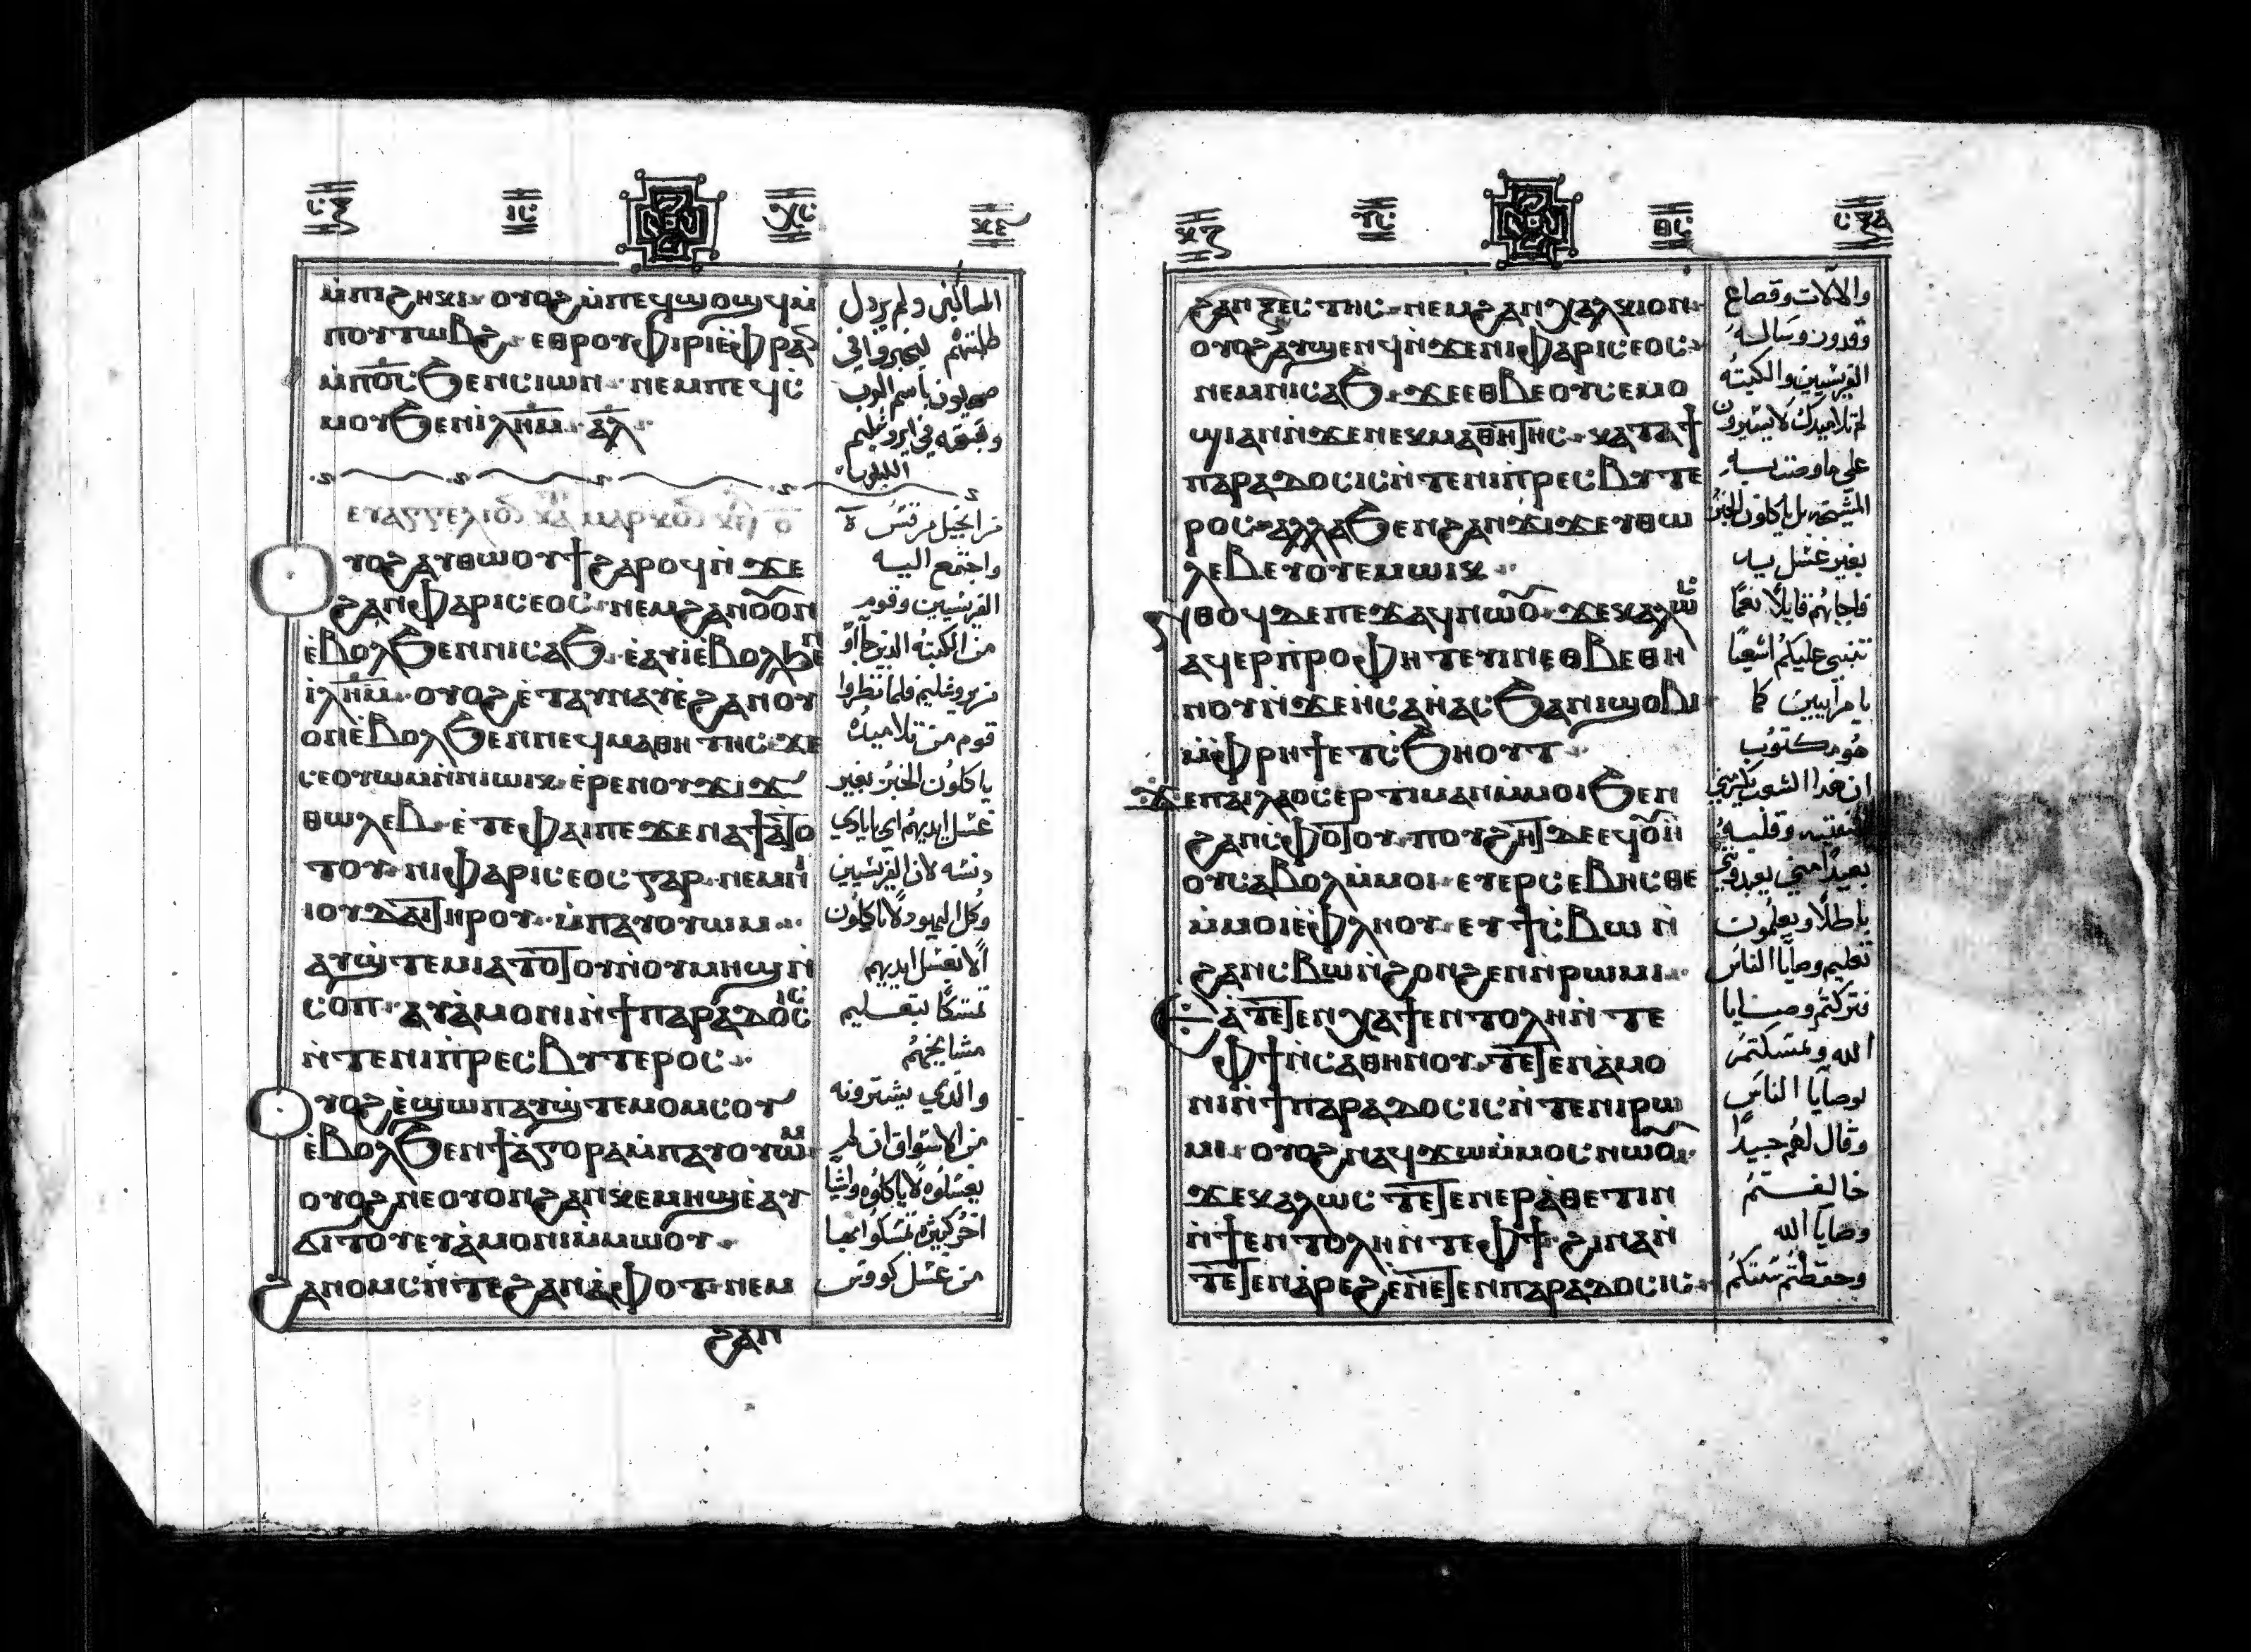 ⲙ̀ⲡⲓϩⲏⲕⲓ· ⲟⲩⲟϩ ⲙ̀ⲡⲉϥϣⲟϣϥ ⲙ̀
ⲡⲟⲩⲧⲱⲃϩ· ⲉⲑⲣⲟⲩⲫⲓⲣⲓ ⲉ̀ⲫⲣⲁⲛ
ⲙ̀ⲡⲟ̅ⲥ̅ ϧⲉⲛ ⲥⲓⲱⲛ· ⲛⲉⲙ ⲡⲉϥⲥ̀
ⲙⲟⲩ ϧⲉⲛ ⲓⲗ̅ⲏ̅ⲙ̅· ⲁ̅ⲗ̅·
ⲉⲩⲁⲅⲅⲉⲗⲓⲟⲛ ⲕⲁⲧⲁ ⲙⲁⲣⲕⲟⲛ
ⲩⲟϩ ⲁⲩⲑⲱⲟⲩϯ ϩⲁⲣⲟϥ ⲛ̀ϫⲉ
ϩⲁⲛⲫⲁⲣⲓⲥⲉⲟⲥ· ⲛⲉⲙ ϩⲁⲛⲟⲩⲟⲛ
ⲉ̀ⲃⲟⲗ ϧⲉⲛ ⲛⲓⲥⲁϧ· ⲉ̀ⲁⲩⲓ̀ ⲉ̀ⲃⲟⲗ ϧⲉⲛ
ⲓⲗ̅ⲏ̅ⲙ̅· ⲟⲩⲟϩ ⲉ̀ⲧⲁⲩⲛⲁⲩ ⲉ̀ϩⲁⲛⲟⲩ
ⲟⲛ ⲉ̀ⲃⲟⲗ ϧⲉⲛ ⲛⲉϥⲙⲁⲑⲏⲧⲏⲥ· ϫⲉ
ⲥⲉⲟⲩⲱⲙ ⲛ̀ⲛⲓⲱⲓⲕ· ⲉ̀ⲣⲉ ⲛⲟⲩϫⲓϫ
ⲑⲱⲗⲉⲃ· ⲉ̀ⲧⲉ ⲫⲁⲓ ⲡⲉ ϫⲉ ⲛⲁⲧⲓⲁⲧⲟ
ⲧⲟⲩ· ⲛⲓⲫⲁⲣⲓⲥⲉⲟⲥ ⲅⲁⲣ· ⲛⲉⲙ ⲛⲓ
ⲓⲟⲩⲇⲁⲓ ⲧⲏⲣⲟⲩ· ⲙ̀ⲡⲁⲩⲟⲩⲱⲙ··
ⲁⲩϣⲧⲉⲙⲓⲁ ⲧⲟⲧⲟⲩ ⲛ̀ⲟⲩⲙⲏϣ ⲛ̀
ⲥⲟⲡ· ⲁⲩⲁ̀ⲙⲟⲛⲓ ⲛ̀ϯⲡⲁⲣⲁⲇⲟⲥⲓⲥ
ⲛ̀ⲧⲉ ⲛⲓⲡⲣⲉⲥⲃⲩⲧⲉⲣⲟⲥ··
ⲩⲟϩ ⲉ̀ϣⲱⲡ ⲁⲩϣⲧⲉⲙⲟⲙⲥⲟⲩ
ⲉ̀ⲃⲟⲗ ϧⲉⲛ ϯⲁ̀ⲅⲟⲣⲁ ⲙ̀ⲡⲁⲩⲟⲩⲱⲙ
ⲟⲩⲟϩ ⲛⲉ ⲟⲩⲟⲛ ϩⲁⲛⲕⲉⲙⲏϣ ⲉ̀ⲁⲩ
ϭⲓⲧⲟⲩ ⲉⲩⲁ̀ⲙⲟⲛⲓ ⲙ̀ⲙⲱⲟⲩ·
ϩⲁⲛⲟⲙⲥ ⲛ̀ⲧⲉ ϩⲁⲛⲁ̀ⲫⲟⲧ· ⲛⲉⲙ
ϩⲁⲛ
المساكين ولم يرذل
طلبتهم ليخبروا في
صهيون باسم الرب
وتسبحته في ايروشليم
الليلويا
من انجيل مرقس
واجتمع اليه
الفريسيين وقوم
من الكتبة الذين جاؤا
من يروشليم فلما نظروا
قوم من تلاميذه
ياكلون الخبز بغير
غسل ايديهم اي بايادي
دنسه لان الفريسيين
وكل اليهود لا ياكلون
الا بغسل ايديهم
تمسكا بتعليم
مشايخهم
والذي يشترونه
من الاسواق ان لم
يغسلوه لا ياكلوه واشيا
اخر كثيره تمسكوا بها
من غسل كووس
ϩⲁⲛⲝⲉⲥⲧⲏⲥ· ⲛⲉⲙ ϩⲁⲛⲭⲁⲗⲕⲓⲟⲛ·
ⲟⲩⲟϩ ⲁⲩϣⲉⲛϥ ⲛ̀ϫⲉ ⲛⲓⲫⲁⲣⲓⲥⲉⲟⲥ·
ⲛⲉⲙ ⲛⲓⲥⲁϧ· ϫⲉ ⲉⲑⲃⲉ ⲟⲩ ⲥⲉⲙⲟ
ϣⲓ ⲁⲛ ⲛ̀ϫⲉ ⲛⲉⲕⲙⲁⲑⲏⲧⲏⲥ· ⲕⲁⲧⲁ ϯ
ⲡⲁⲣⲁⲇⲟⲥⲓⲥ ⲛ̀ⲧⲉ ⲛⲓⲡ̀ⲣⲉⲥⲃⲩⲧⲉ
ⲣⲟⲥ· ⲁⲗⲗⲁ ϧⲉⲛ ϩⲁⲛϫⲓϫ ⲉⲩⲑⲱ
ⲗⲉⲃ ⲉⲩⲟⲩⲉⲙ ⲱⲓⲕ··
ⲛⲑⲟϥ ⲇⲉ ⲡⲉϫⲁϥ ⲛⲱⲟⲩ· ϫⲉ ⲕⲁⲗⲱⲥ
ⲁϥⲉⲣⲡ̀ⲣⲟⲫⲏⲧⲉⲩⲓⲛ ⲉⲑⲃⲉⲑⲏ
ⲛⲟⲩ ⲛ̀ϫⲉ ⲏ̀ⲥⲁⲏ̀ⲁⲥ ϧⲁ ⲛⲓϣⲟⲃⲓ
ⲙ̀ⲫⲣⲏϯ ⲉⲧⲥ̀ϧⲏⲟⲩⲧ··
ϫⲉ ⲡⲁⲓⲗⲁⲟⲥ ⲉⲣⲧⲓⲙⲁⲛ ⲙ̀ⲙⲟⲓ ϧⲉⲛ
ϩⲁⲛⲥ̀ⲫⲟⲧⲟⲩ· ⲡⲟⲩϩⲏⲧ ⲇⲉ ⲉϥⲟⲩⲏ
ⲟⲩ ⲥⲁⲃⲟⲗ ⲙ̀ⲙⲟⲓ· ⲉⲩⲉⲣⲥⲉⲃⲏⲥⲑⲉ
ⲙ̀ⲙⲟⲓ ⲉ̀ⲫⲗⲏⲟⲩ· ⲉⲩϯⲥ̀ⲃⲱ ⲛ̀
ϩⲁⲛⲥⲃⲱ ⲛ̀ϩⲟⲛϩⲉⲛ ⲛ̀ⲣⲱⲙⲓ··
ⲉⲁⲧⲉⲧⲉⲛⲭⲁ ϯⲉⲛⲧⲟⲗⲏ ⲛ̀ⲧⲉ
ⲫϯ ⲛ̀ⲥⲁⲑⲏⲛⲟⲩ· ⲧⲉⲧⲉⲛⲁ̀ⲙⲟ
ⲛⲓ ⲛ̀ϯⲡⲁⲣⲁⲇⲟⲥⲓⲥ ⲛ̀ⲧⲉ ⲛⲓⲣⲱ
ⲙⲓ· ⲟⲩⲟϩ ⲛⲁϥϫⲱ ⲙ̀ⲙⲟⲥ ⲛⲱⲟⲩ·
ϫⲉ ⲕⲁⲗⲱⲥ ⲧⲉⲧⲉⲛⲉⲣⲁ̀ⲑⲉⲧⲓⲛ
ⲛ̀ϯⲉⲛⲧⲟⲗⲏ ⲛ̀ⲧⲉ ⲫϯ· ϩⲓⲛⲁ ⲛ̀
ⲧⲉⲧⲉⲛⲁ̀ⲣⲉϩ ⲉ̀ⲛⲉⲧⲉⲛⲡⲁⲣⲁⲇⲟⲥⲓⲥ·
والالات وقصاع
وقدور وساله
الفريسيين والكتبة
لم تلاميذك لا يسيرون
على ما وصت به
المشيخه بل ياكلون الخبز
بغير غسل يد
فاجابهم قايلا نعما
تنبى عليكم اشعيا
يا مرايين كما
هو مكتوب
ان هذا الشعب يكرمني
بشفتيه وقلبه
بعيدا مني يعبدوني
باطلا ويعلمون
تعليم وصايا الناس
فتركتم وصايا
الله وتمسكتم
بوصايا الناس
وقال لهم جيدا
خالفتم
وصايا الله
وحفظتم سنتكم